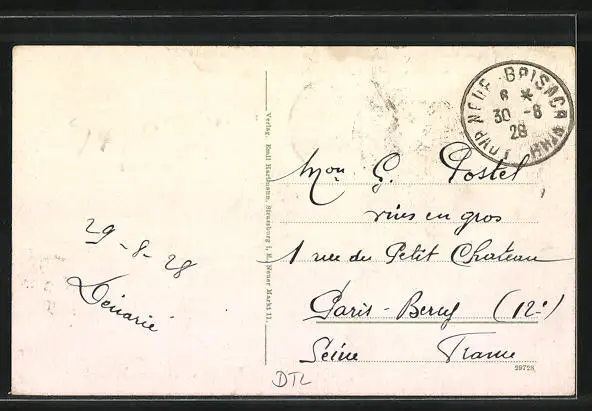 29-8-28
Dénarié
Verlag. Emil Hartmann, Strassburg i. E., Neuer Markt 11.
NEUF-BRISACH
6 *
30 -8
28
Mon G. Postel
vins en gros
1 rue du Petit Chateau
Paris-Bercy (12e)
Seine France
29728
DTL